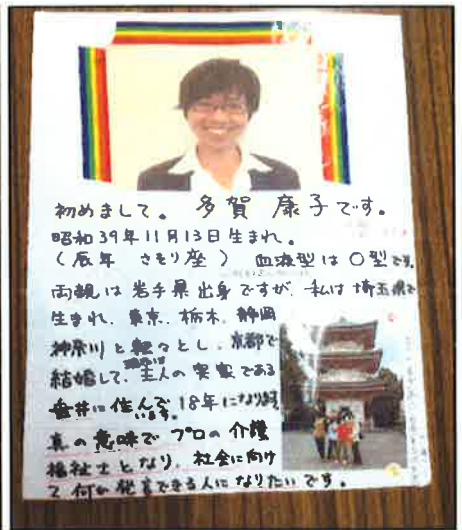 初めまして。 多賀 康子です。
昭和39年11月13日生まれ。
(辰年 さそり座) 血液型はO型です。
両親は岩手県出身ですが、私は埼玉県で
生まれ、東京、栃木、静岡
神奈川と転々とし、京都で
結婚して、主人の実家である
垂井に住んで18年になります。
真の意味でプロの介護
福祉士となり、社会に向け
て何か発言できる人になりたいです。